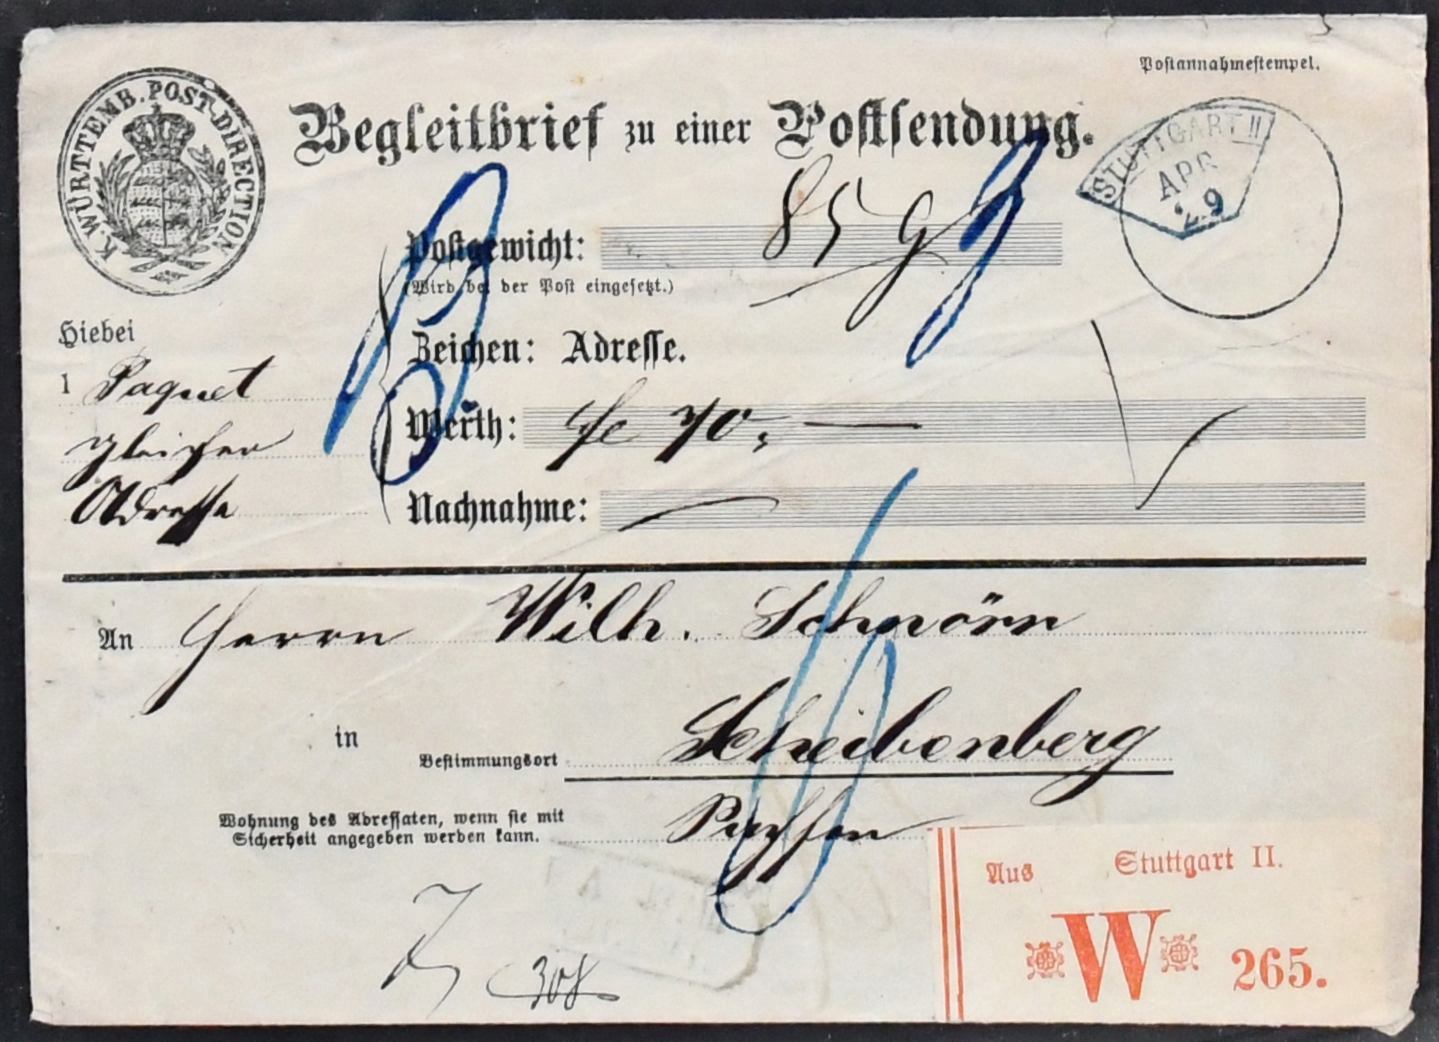 K. WÜRTTEMB. POST-DIRECTION
Postannahmestempel.
Begleitbrief zu einer Postsendung.
STUTTGART II
APR
29
Postgewicht: 85 g
(Wird bei der Post eingesetzt.)
Hiebei
1 Paquet
gleicher
Adresse
Zeichen: Adresse.
Werth: 70,—
Nachnahme: —
An Herrn Wilh. Schnörr
in
Bestimmungsort Scheibenberg
Wohnung des Adressaten, wenn sie mit
Sicherheit angegeben werden kann.
Sachsen
Aus Stuttgart II.
W 265.
308